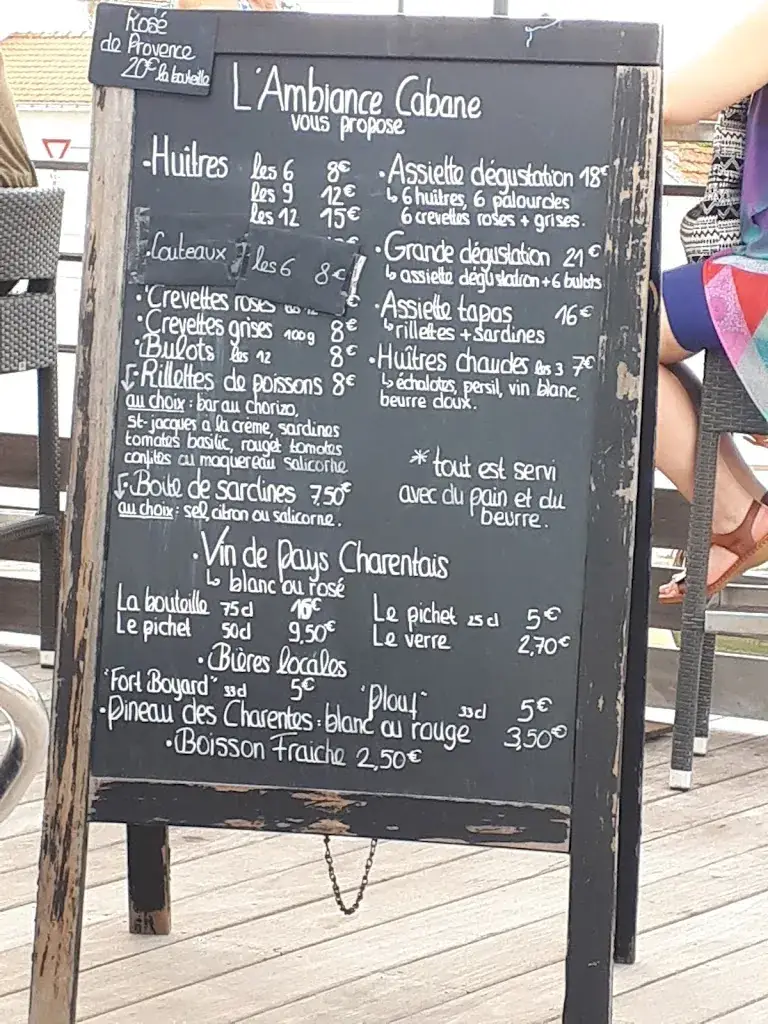 Rosé
de Provence
20€ la bouteille
L'Ambiance Cabane
vous propose
·Huitres les 6 8€
les 9 12€
les 12 15€
·Couteaux les 6 8€
·Crevettes roses
·Crevettes grises 100g 8€
·Bulots les 12 8€
·Rillettes de poissons 8€
au choix : bar au chorizo,
St-jacques a la crème, sardines
tomates basilic, rouget tomates
confites ou maquereau salicorne
·Boite de sardines 7,50€
au choix : sel, citron ou salicorne.
·Assiette dégustation 18€
↳ 6 huitres, 6 palourdes
6 crevettes roses + grises.
·Grande dégustation 21€
↳ assiette dégustation + 6 bulots
·Assiette tapas 16€
↳ rillettes + sardines
·Huîtres chaudes les 3 7€
↳ échalotes, persil, vin blanc,
beurre doux.
* tout est servi
avec du pain et du
beurre.
·Vin de Pays Charentais
↳ blanc ou rosé
La bouteille 75cl 16€
Le pichet 50cl 9,50€
Le pichet 25cl 5€
Le verre 2,70€
·Bières locales
"Fort Boyard" 33cl 5€ "Plouf" 33cl 5€
·Pineau des Charentes : blanc ou rouge 3,50€
·Boisson Fraiche 2,50€